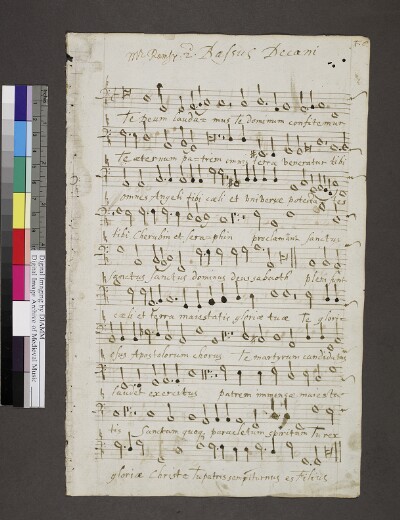 Bassus Decani
Te Deum lauda= mus Te dominum confitemur
Te æternum pa=trem omnis terra veneratur tibi
omnes Angeli tibi cæli et universæ potesta=tes
tibi Cherubin et Seraphin proclamant sanctus
sanctus sanctus dominus deus sabaoth pleni sunt
cæli et terra maiestatis gloriæ tuæ Te glori=
osus Apostolorum chorus Te martyrum candidatus
laudat exercitus patrem immensæ maiesta=
tis Sanctum quoq paracletum spiritum Tu rex
gloriæ Christe Tu patris sempiturnus es Filius
Digital Imaging by DIAMM
Digital Image Archive of Medieval Music